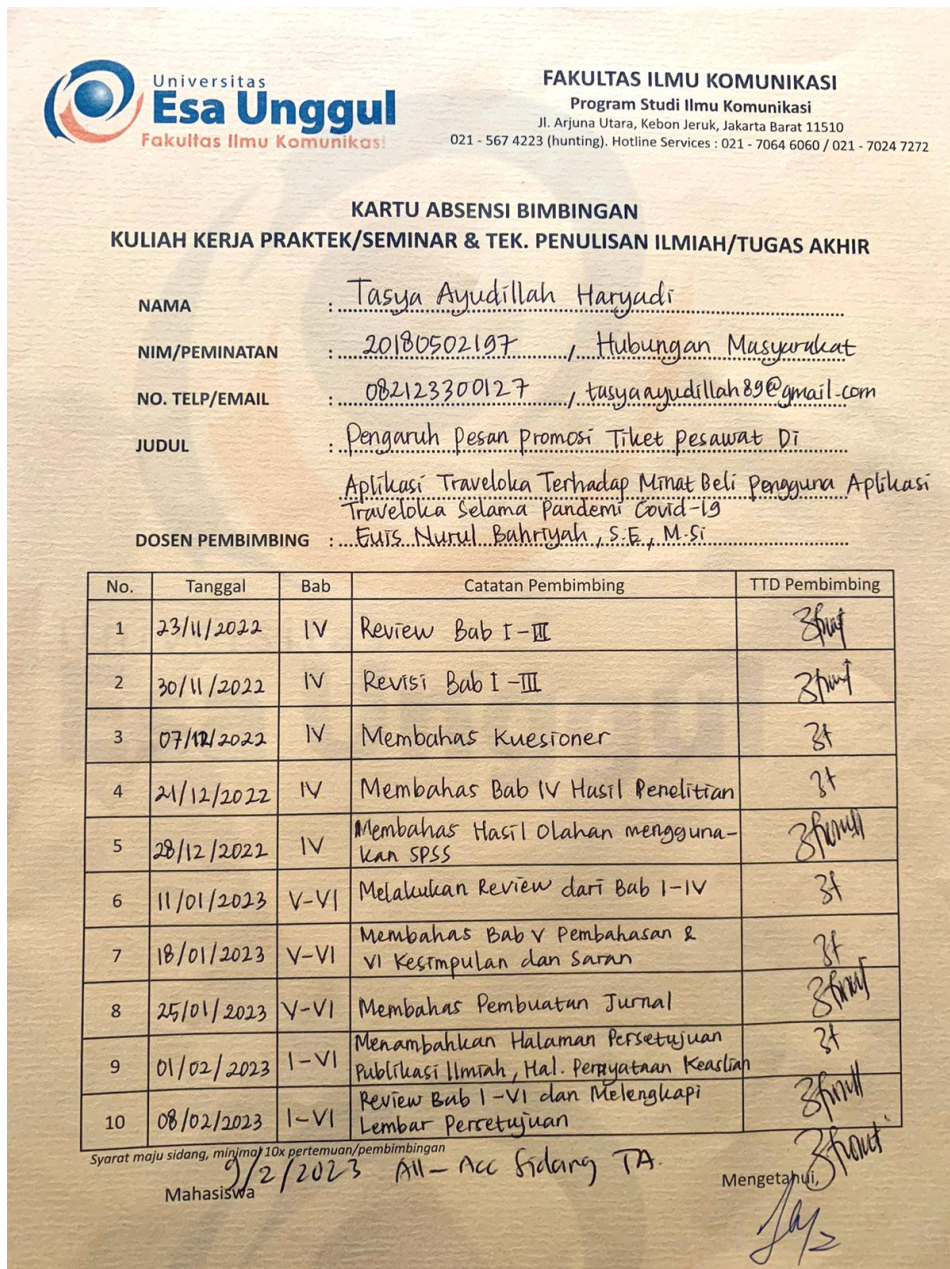 Universitas
Esa Unggul
Fakultas Ilmu Komunikasi
FAKULTAS ILMU KOMUNIKASI
Program Studi Ilmu Komunikasi
Jl. Arjuna Utara, Kebon Jeruk, Jakarta Barat 11510
021 - 567 4223 (hunting). Hotline Services : 021 - 7064 6060 / 021 - 7024 7272
KARTU ABSENSI BIMBINGAN
KULIAH KERJA PRAKTEK/SEMINAR & TEK. PENULISAN ILMIAH/TUGAS AKHIR
NAMA : Tasya Ayudillah Haryadi
NIM/PEMINATAN : 20180502197 , Hubungan Masyarakat
NO. TELP/EMAIL : 082123300127 , tasyaayudillah89@gmail.com
JUDUL : Pengaruh Pesan Promosi Tiket Pesawat Di
Aplikasi Traveloka Terhadap Minat Beli Pengguna Aplikasi
Traveloka Selama Pandemi Covid-19
DOSEN PEMBIMBING : Euis Nurul Bahriyah, S.E, M.Si
No. Tanggal Bab Catatan Pembimbing TTD Pembimbing
1 23/11/2022 IV Review Bab I-III
2 30/11/2022 IV Revisi Bab I-III
3 07/12/2022 IV Membahas Kuesioner
4 21/12/2022 IV Membahas Bab IV Hasil Penelitian
5 28/12/2022 IV Membahas Hasil Olahan mengguna-
kan SPSS
6 11/01/2023 V-VI Melakukan Review dari Bab I-IV
7 18/01/2023 V-VI Membahas Bab V Pembahasan &
VI Kesimpulan dan Saran
8 25/01/2023 V-VI Membahas Pembuatan Jurnal
9 01/02/2023 I-VI Menambahkan Halaman Persetujuan
Publikasi Ilmiah, Hal. Pernyataan Keaslian
10 08/02/2023 I-VI Review Bab I-VI dan Melengkapi
Lembar Persetujuan
Syarat maju sidang, minimal 10x pertemuan/pembimbingan
9/2/2023 All - Acc Sidang TA.
Mahasiswa Mengetahui,